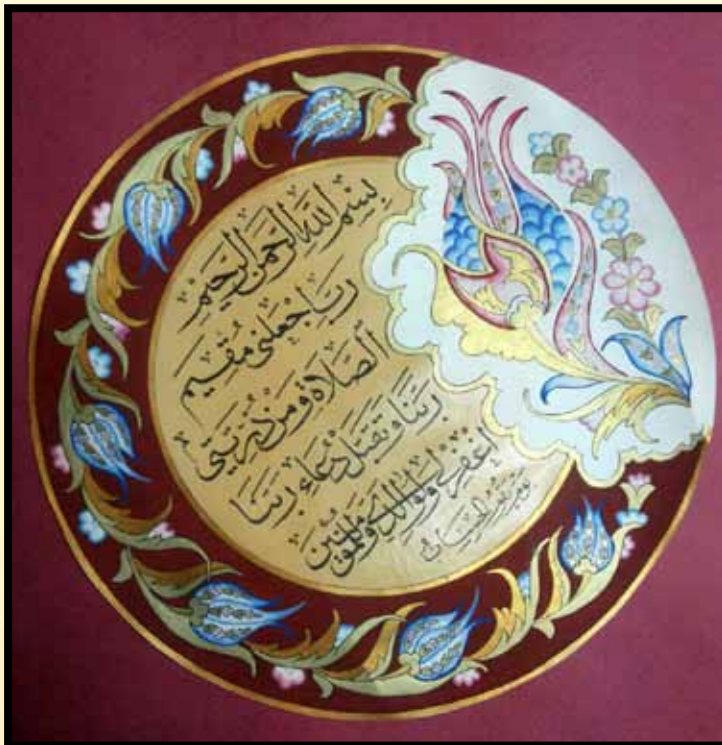 بِسْمِ اللّٰهِ الرَّحْمٰنِ الرَّحِيْمِ
رَبِّ اجْعَلْنِى مُقِيْمَ
الصَّلَاةِ وَمِنْ ذُرِّيَّتِى
رَبَّنَا وَتَقَبَّلْ دُعَاءِ رَبَّنَا
اغْفِرْ لِى وَلِوَالِدَىَّ وَلِلْمُؤْمِنِيْنَ
يَوْمَ يَقُوْمُ الْحِسَابُ